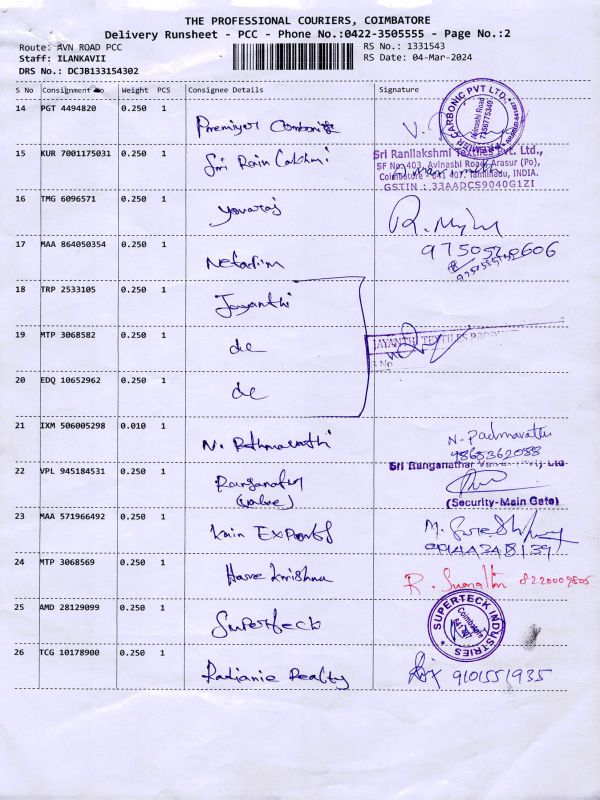 THE PROFESSIONAL COURIERS, COIMBATORE
Delivery Runsheet - PCC - Phone No.:0422-3505555 - Page No.:2
Route: AVN ROAD PCC
RS No.: 1331543
Staff: ILANKAVII
RS Date: 04-Mar-2024
DRS No.: DCJB133154302
S No Consignment No Weight PCS Consignee Details Signature
14 PGT 4494820 0.250 1 Premiyer
CARBONIC PVT LTD.,
Avinashi Road
15 KUR 7001175031 0.250 1 Sri Rain Lakhmi
Sri Ranilakshmi Textiles Pvt. Ltd.,
SF No 403, Avinashi Road, Arasur (Po),
Coimbatore - 641 407, Tamilnadu, INDIA.
GSTIN : 33AADCS9040G1ZI
16 TMG 6096571 0.250 1 Yovaraj R.
17 MAA 864050354 0.250 1
18 TRP 2533105 0.250 1 Jayanthi
19 MTP 3068582 0.250 1 do
JAYANTHI TEXTILES
20 EDQ 10652962 0.250 1 do
21 IXM 506005298 0.010 1 N. N. Padmavathi
9865362088
22 VPL 945184531 0.250 1 (valve)
Sri Ranganathar
(Security-Main Gate)
23 MAA 571966492 0.250 1 Kain Exports M.
24 MTP 3068569 0.250 1 Hare krishna R.
25 AMD 28129099 0.250 1 Superteck
SUPERTECK INDUSTRIES
Coimbatore
26 TCG 10178900 0.250 1 Radianie Realty 9101551935